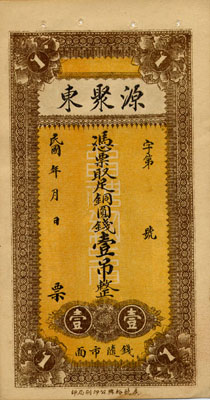 1 1
東聚源
字第 號
憑票取足銅圓錢壹吊整
民國 年 月 日 票
壹 壹
面市隨錢
1 1